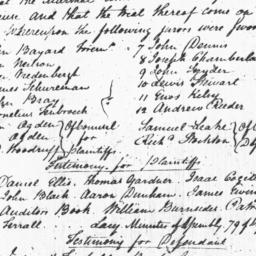 and that the trial thereof come on
Whereupon the following jurors were sworn
Bayard 7 John Dennis
Neilson 8 Joseph Chamberla
Vredenbergh 9 John Snyder
Schureman 10 Lewis Stewart
Bray 11 Enos Kelsey
Tenbroeck 12 Andrew Reder
Ogden Of Counsel Samuel Leake
Ogden for Richd Stockton
Woodruff Plaintiffs
Testimony for Plaintiffs
Daniel Ellis. Thomas Gardner. Isaac
John Black Aaron Dunham. James Ewin
Auditors Book. William Burnsides. Pat
Ferrall. Minutes of Assembly 79
Testimony for Defendant